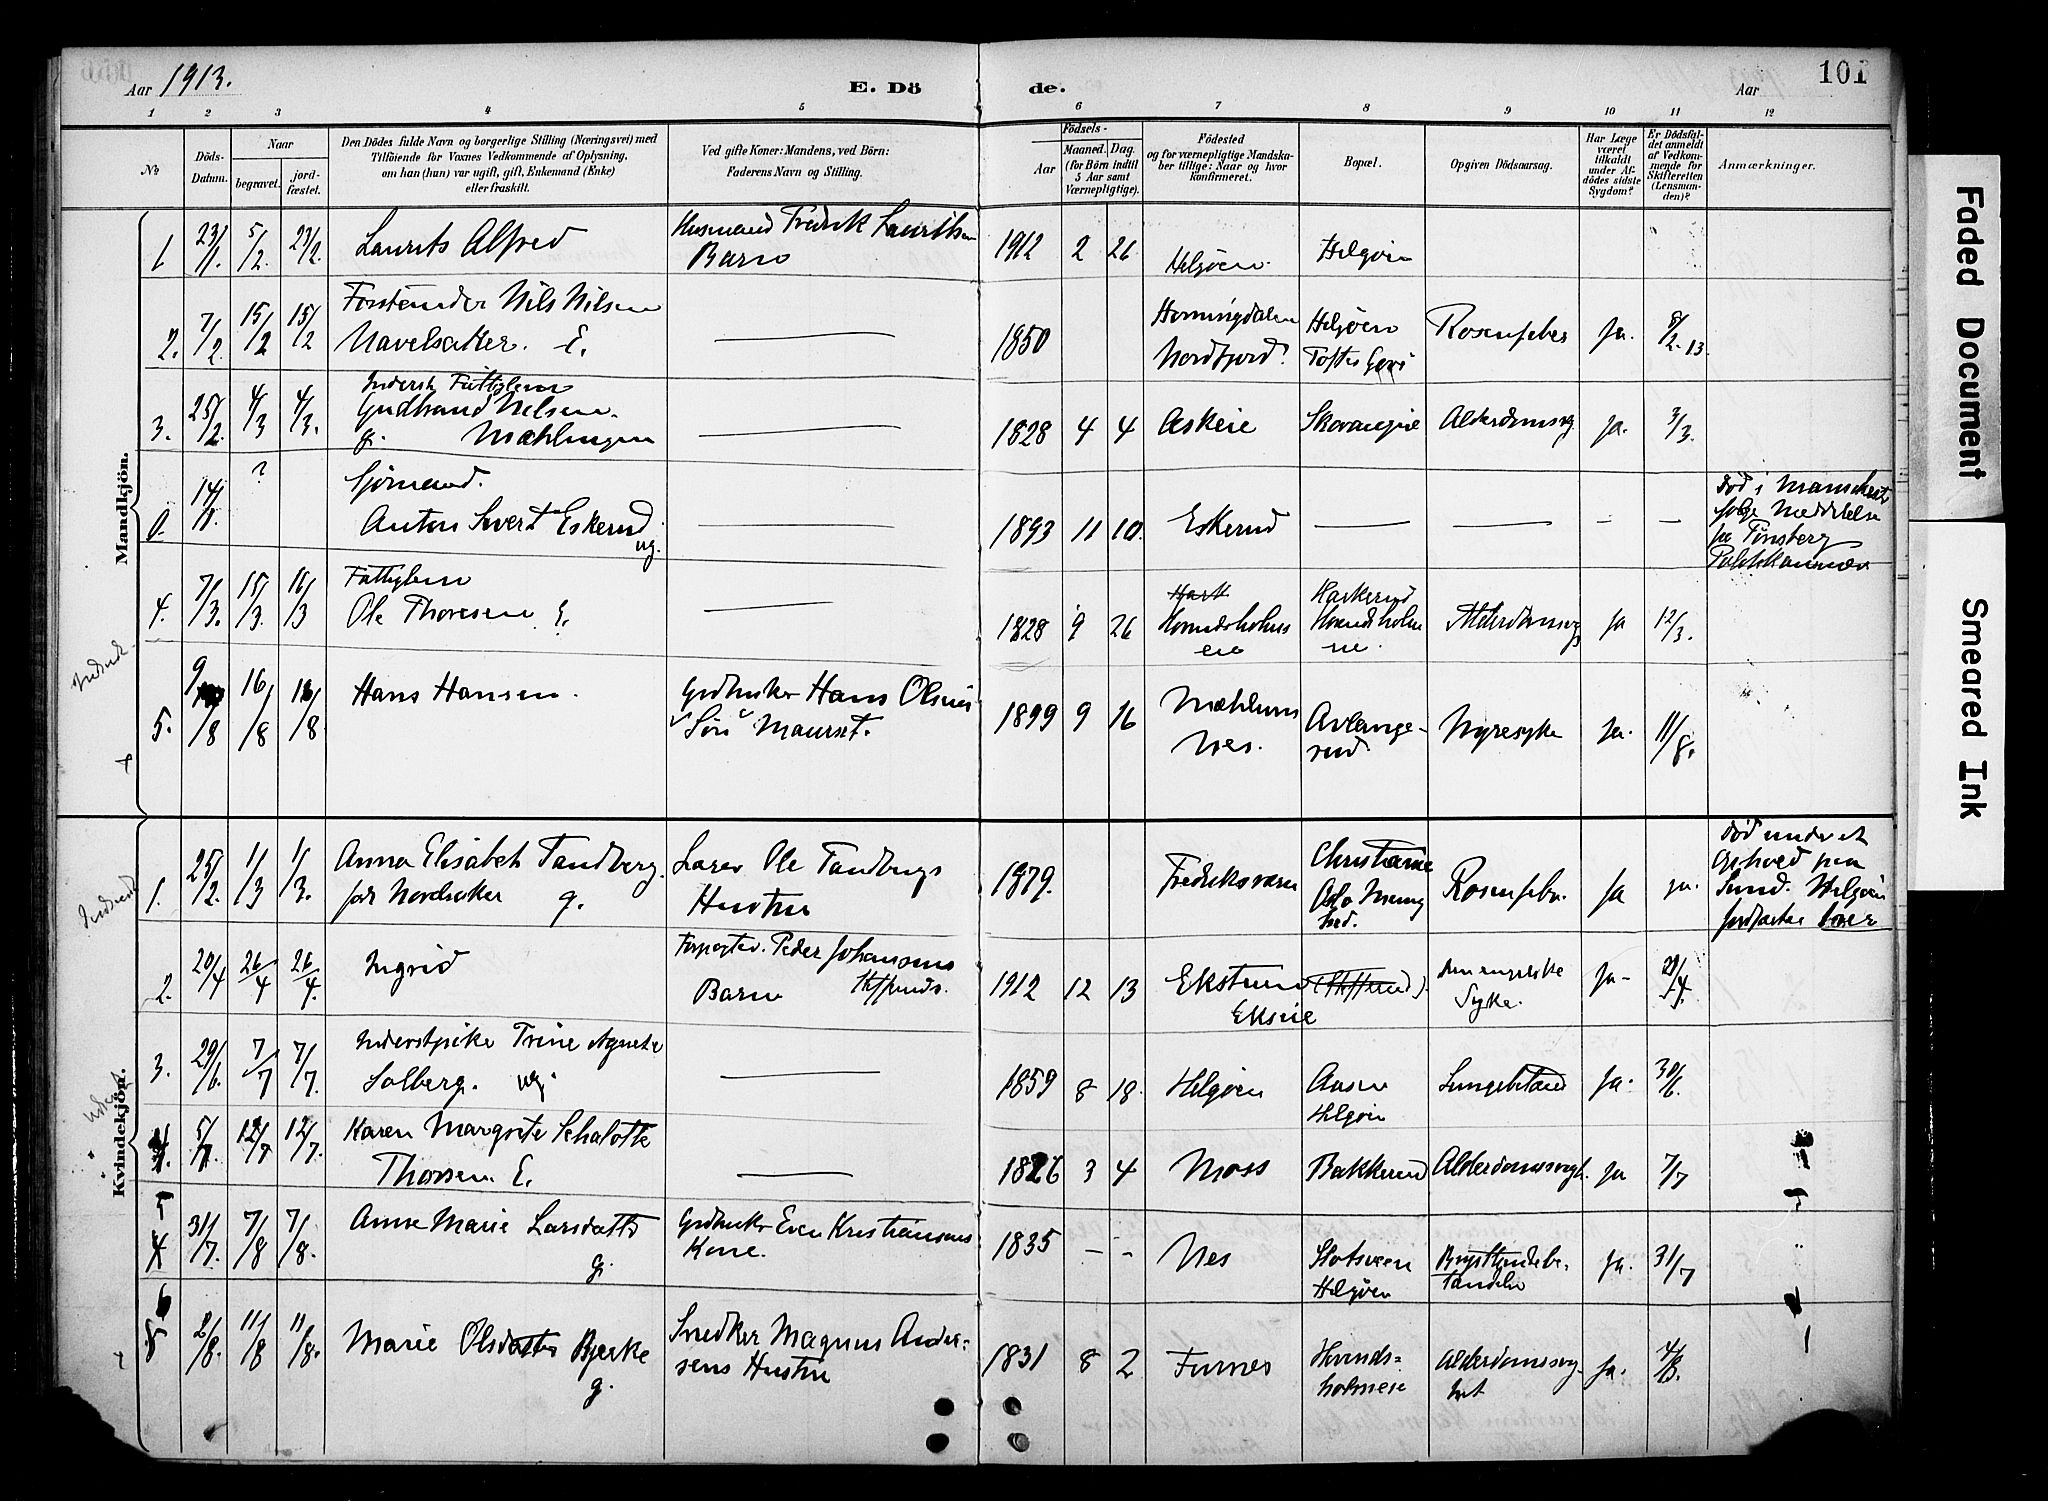 Aar 1913.
E. Dö
de.
Aar
101
1 2 3 4 5 6 7 8 9 10 11 12
No
Döds-Datum.
Naar
begravet.
jord-fæstet.
Den Dödes fulde Navn og borgerlige Stilling (Næringsvei) med
Tilföiende for Voxnes Vedkommende af Oplysning,
om han (hun) var ugift, gift, Enkemand (Enke)
eller fraskilt.
Ved gifte Koner: Mandens, ved Börn:
Faderens Navn og Stilling.
Födsels-
Aar
Maaned. Dag.
(for Börn indtil
5 Aar samt
Værnepligtige).
Födested
og for værnepligtige Mandska-
ber tillige: Naar og hvor
konfirmeret.
Bopæl.
Opgiven Dödsaarsag.
Har Læge
været
tilkaldt
under Af-
dödes sidste
Sygdom?
Er Dödsfal-
det anmeldt
af Vedkom-
mende for
Skifteretten
(Lensman-
den)?
Anmærkninger.
Mandkjön.
1. 23/1. 5/2. 23/2. Laurits Alfred
Husmand Fredrik Lauritsen
Barn
1912 2 26 Helgøen. Helgøen
2. 7/2. 15/2 15/2 Nils Nilsen
Navelsaker. E.
1850
Horningdalen
Nordfjord.
Helgøen
Toftes
Rosenfeber Ja. 8/2.13.
3. 25/2. 4/3 4/3. Inderst Fattiglem
Gudbrand Nilsen.
g. Mæhlungen
1828 4 4 Askeie Skavangeie Alderdomssvg. Ja. 3/3.
0. 14/1. ? Sjømand.
Anton Sivert Eskerud
ug.
1893 11 10. Eskerud
Død i Manchester
følge Meddelelse
fra Tønsberg
4. 7/3. 15/3. 16/3 Fattiglem
Ole Thoresen E.
1828 9 26
Hovindsholms
eie
Bakkerud
Hovindsholm
eie.
Alderdomssvg Ja 12/3.
5. 9/8 16/8 16/8. Hans Hansen.
Grdbruker Hans Olsen
Søn Maurset.
1899 9 16
Mæhlum
Nes.
Avlange-
rud.
Nyresyke Ja. 11/8.
Kvindekjön.
1. 25/2. 1/3 1/3. Anna Elisabet Tandberg.
født Nordsaker g.
Ole Tandbergs
Hustru
1879. Fredriksværn
Christiania
Oslo
Rosenfeber Ja Ja.
Død under et
ophold paa
Sund. Helgøen
jordfæstet
2. 20/4 26/4 26/4. Ingrid
Forpagter. Peder Johansens
Barn
1912 12 13
Ekstun
Ekseie
den engelske
Syke.
Ja. 21/4.
3. 29/6. 7/7 7/7. Inderstpike Trine Agnete
Solberg. ug.
1859 8 18. Helgøen
Aasen
Helgøen
Lungebetænd Ja. 30/6.
4. 5/7. 12/7 12/7. Karen Margrete Schalotte
Thorsen E.
1826 3 4 Moss Bakkerud Alderdomssvagh. Ja 7/7
5
4 31/7. 7/8 7/8. Anne Marie Larsdatter
g.
Grdbruker Even Kristiansens
Kone.
1835 - - Nes
Slotsveen
Helgøen
Brysthindebe-
tændelse
Ja. 31/7
6
5 2/8. 11/8 11/8. Marie Olsdatter Bjerke
g.
Snedker Magnus Ander-
sens Hustru
1831 8 2 Furnes
Hovinds=
holmeie
Alderdomssvag-
het
Ja. 4/8.
Faded Document
Smeared Ink